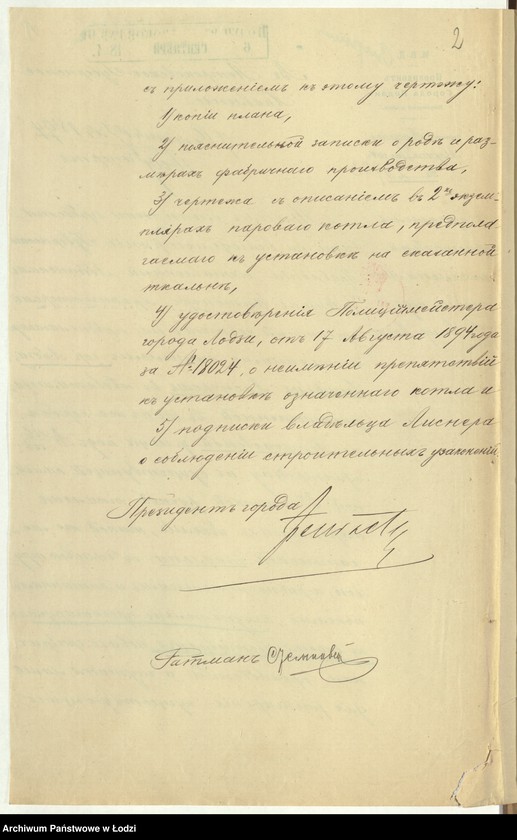 2
съ приложеніемъ къ этому чертежу:
1) копіи плана,
2) пояснительной записки о родѣ и раз-
мѣрахъ фабричнаго производства,
3) чертежа съ описаніемъ въ 2хъ экзем-
плярахъ пароваго котла, предпола
гаемаго къ установкѣ на сказанной
ткальнѣ,
4) удостовѣренія Полиціймейстера
города Лодзи, отъ 17 Августа 1894 года
за № 18024, о неимѣніи препятствій
къ установкѣ означеннаго котла и
5) подписки владѣльца Лиснера
о соблюденіи строительныхъ узаконеній
Президентъ города
Archiwum Państwowe w Łodzi